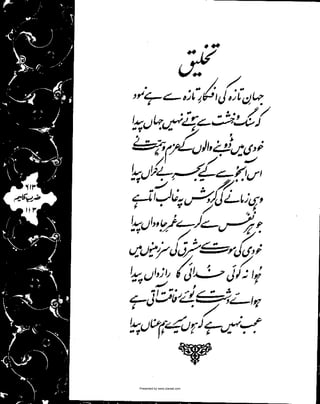 تخلیق
جہانِ تازہ کی افکارِ تازہ سے ہے نمود
کہ سنگ و خشت سے ہوتے نہیں جہاں پیدا
خودی میں ڈوبنے والوں کے عزم و ہمت نے
اس آبجو سے کیے بحرِ بے کراں پیدا
وہی زمانے کی گردش پہ غالب آتا ہے
جو ہر نفس سے کرے عمرِ جاوداں پیدا
خودی کی موت سے مشرق کی سرزمینوں میں
ہوا نہ کوئی خدائی کا رازداں پیدا
ہوائے دشت سے بوئے رفاقت آتی ہے
عجب نہیں ہے کہ ہوں میرے ہم عناں پیدا
ضربِ کلیم
Presented by www.ziaraat.com